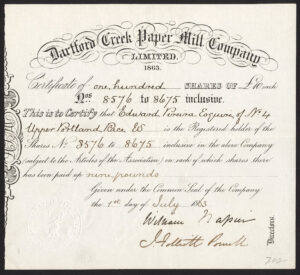 Dartford Creek Paper Mill Company
LIMITED.
1863.
Certificate of one hundred SHARES OF £10 each
Nos 8576 to 8675 inclusive.
This is to Certify that Edward Esquire of No 4
Upper Portland Place is the Registered holder of the
Shares No 8576 to 8675 inclusive in the above Company
(subject to the Articles of the Association) on each of which shares there
has been paid up nine pounds
Given under the Common Seal of the Company
the 1st day of July 1863
William Napier
Directors.